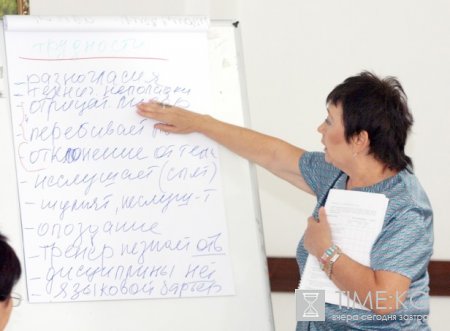 трудности
- разногласия
- технич неполадки
- отрицат
перебивает
отклонение от темы
- не слушает (спят)
- шумят, неслуш-т
- опоздание
- тренер не знает отв
- дисциплины нет
- языковой барьер
TIME.KG
вчера сегодня завтра